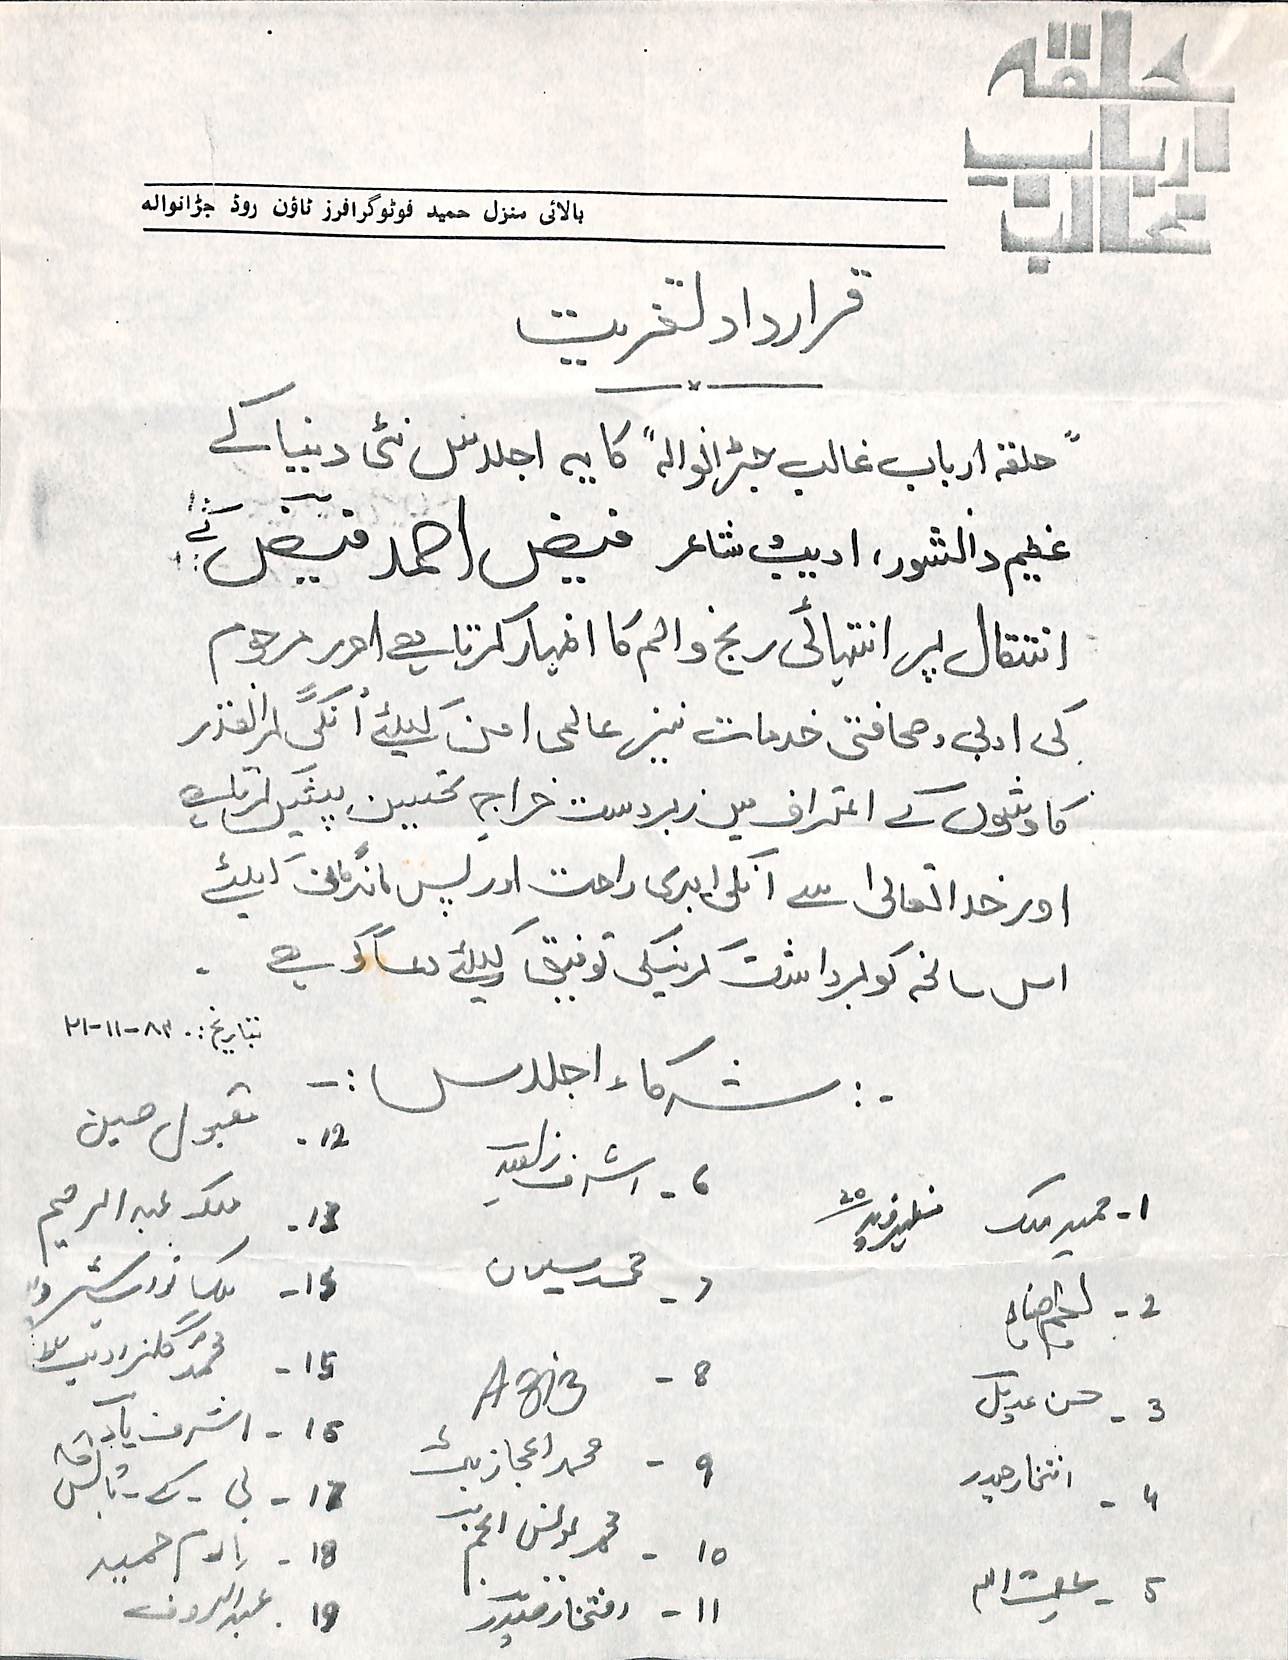 حلقہ
ارباب
غالب
بالائی منزل حمید فوٹوگرافرز ٹاؤن روڈ جڑانوالہ
قرارداد تعزیت
"حلقہ ارباب غالب جڑانوالہ" کا یہ اجلاس نئی دنیا کے
عظیم دانشور، ادیب و شاعر فیض احمد فیض کے
انتقال پر انتہائی رنج و الم کا اظہار کرتا ہے اور مرحوم
کی ادبی و صحافتی خدمات نیز عالمی امن کیلئے اُنکی گرانقدر
کاوشوں کے اعتراف میں زبردست خراجِ تحسین پیش کرتا ہے
اور خدا تعالیٰ سے اُنکی ابدی راحت اور پس ماندگان کیلئے
اس سانحہ کو برداشت کرنیکی توفیق کیلئے دعا گو ہے -
بتاریخ: ۸۴-۱۱-۲۱
-: شرکاء اجلاس :-
1- حمید ملک
2-
3- حسن عدیل
4- افتخار حیدر
5- عنایت اللہ
6- اشرف
7- محمد سلیمان
8- Aziz
9- محمد اعجاز
10- محمد یونس انجم
11- افتخار
12- مقبول حسین
13- ملک عبدالرحیم
15-
15- محمد گلزار
16- اشرف
17- بی - کے -
18- ارم حمید
19- عبدالرؤف